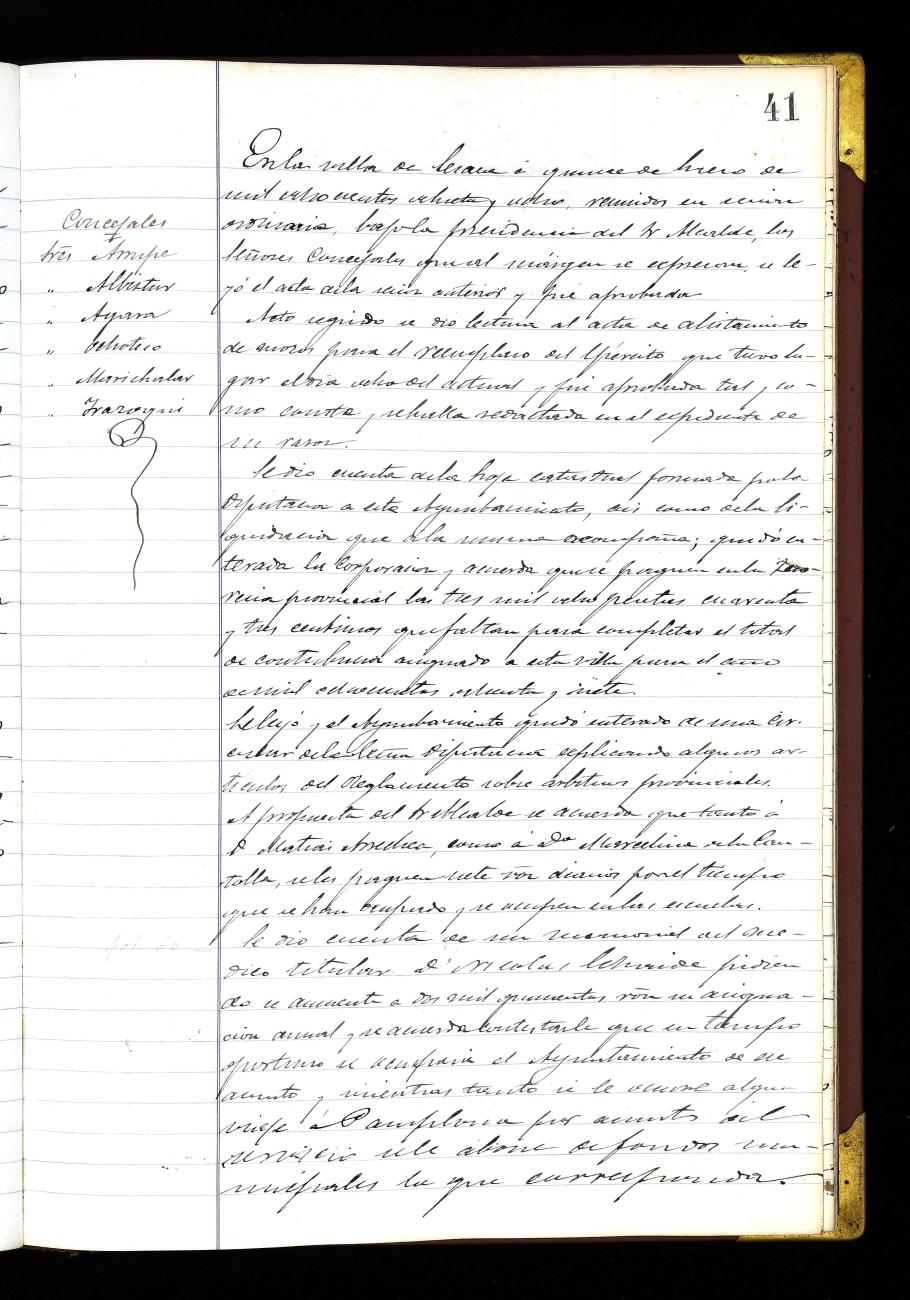 41
En la villa de Lesaca á quince de Enero de
mil ochocientos ochenta y ocho, reunidos en sesión
ordinaria, bajo la presidencia del Sr Alcalde, los
Señores Concejales que al márgen se expresan, se le-
yó el acta de la sesión anterior y fué aprobada
Concejales
Sres
" Albistur
" Ayara
" Ochoteco
" Marichalar
" Irazoqui
Acto seguido se dio lectura al acta de alistamiento
de mozos para el reemplazo del Ejército que tuvo lu-
gar el dia ocho del actual y fué aprobada tal y co-
mo consta y se halla redactada en el expediente de
su razon.
Se dio cuenta de la hoja catastral formada por la
Diputacion a este Ayuntamiento, asi como de la li-
quidacion que a la misma acompaña; quedó en-
terada la Corporacion y acuerda que se paguen en la Teso-
reria provincial las tres mil ocho pesetas cuarenta
y tres centimos que faltan para completar el total
de contribucion asignado a esta villa para el año
de mil ochocientos ochenta y siete.
Se leyó y el Ayuntamiento quedó enterado de una cir-
cular de la Excma Diputacion explicando algunos ar-
ticulos del Reglamento sobre arbitrios provinciales.
A propuesta del Sr Alcalde se acuerda que tanto á
D Matias Arrechea, como á Da Marcelina de la Can-
tolla, se les paguen siete ron diarios por el tiempo
que se han ocupado y se ocupen en las escuelas.
Se dio cuenta de un memorial del me-
dico titular Dn Nicolas pidien
do se aumente a dos mil quinientos ron su asigna-
cion anual y se acuerda contestarle que en tiempo
oportuno se ocuparia el Ayuntamiento de ese
asunto y mientras tanto si le ocurre algun
viaje á Pamplona por asuntos del
servicio se le abone de fondos mu-
nicipales lo que corresponda.